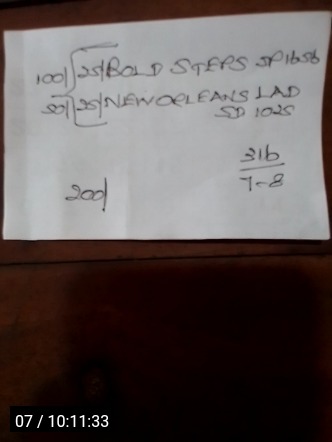 100/ 25/ BOLD STEPS SP 1656
50/ 25/ NEW ORLEANS LAD
SD 1025
316
7-8
200/
07 / 10:11:33